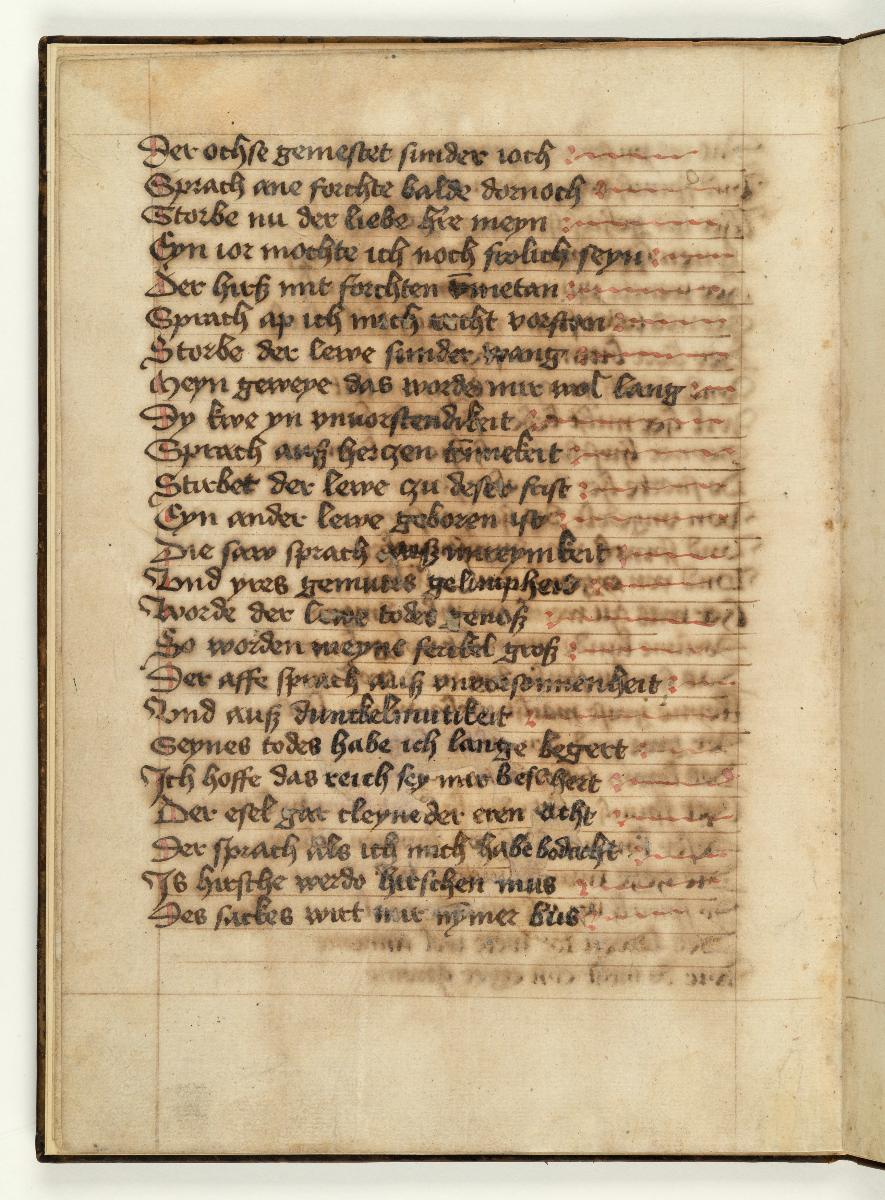 Der ochse gemestet sunder ioch
Sprach ane forchte balde dornoch
Storbe nu der liebe h̄re meyn
Eyn ior mochte ich noch frolich seyn
Der hirß mit forchten vmetan
Sprach ap ich mich recht vorstan
Storbe der lewe sunder wang
Meyn geweye das worde mir wol lang
Dy kwe yn vnuorstendikeit
Sprach auß herczen
Stirbet der lewe czu deser frist
Eyn ander lewe geboren ist
Die saw sprach auß unreynikeit
Vnd yres gemutis gelimpheit
Worde der lewe todes genoß
So worden meyne ferckel groß
Der affe sprach auß vnuorsonnenheit
Vnd auß dunckelmutikeit
Seynes todes habe ich lange begert
Ich hoffe das reich sey mir beschert
Der esel gar cleyne der eren acht
Der sprach als ich mich habe bodacht
Is hirsche werdo hirschen mus
Des sackes wirt mir nȳmer bus